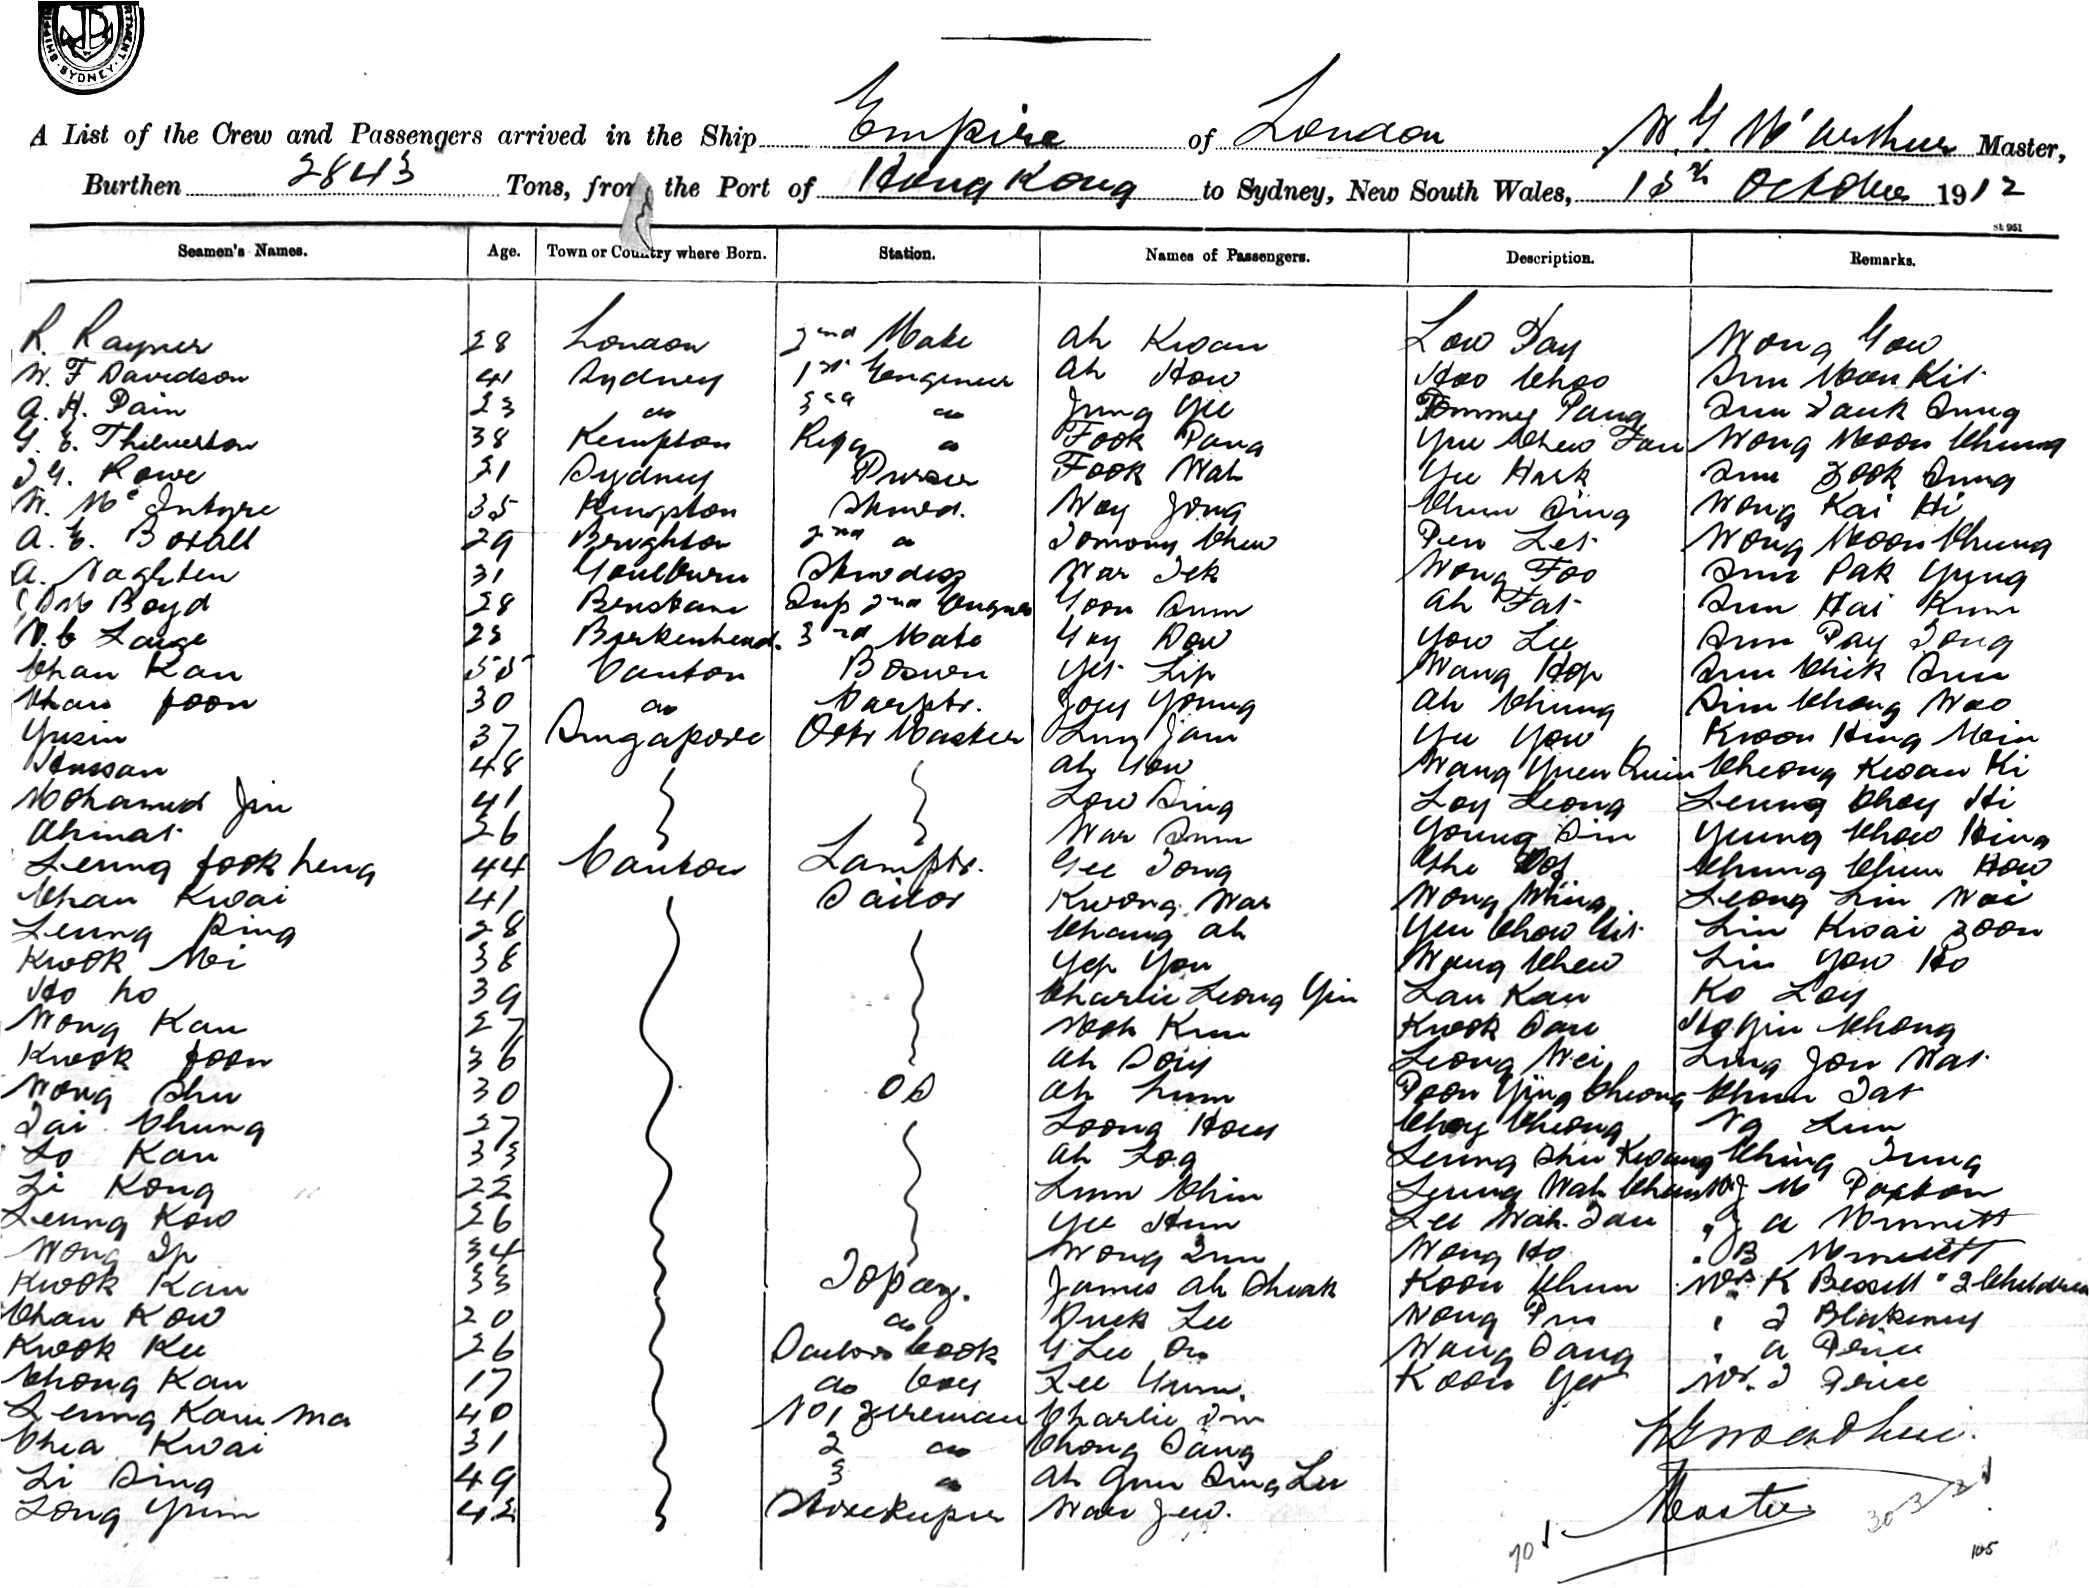 SYDNEY
A List of the Crew and Passengers arrived in the Ship Empire of London W. G. McArthur Master,
Burthen 2843 Tons, from the Port of Hong Kong to Sydney, New South Wales, 15th October 1912
St 951
Seamen's Names. Age. Town or Country where Born. Station. Names of Passengers. Description. Remarks.
R. Rayner 28 London 2nd Mate Ah Kwan Low Pay Wong Gow
W. F Davidson 41 Sydney 1st Engineer Ah How Hoo Choo Sum Moon Kit
A. H. Pain 23 do 3rd do Jung Yee Tommy Pang Sum Sauk Sung
G. E. Thilverton 38 Kempton Refg do Fook Pang Yee Chew Fau Wong Moon Chung
Rowe 21 Sydney Purser Fook Wah Yee Hark Sum Sook Sung
W. McIntyre 35 Kempton Stewd. Way Jong Chun Sing Wong Kai Hi
A. E. Boxall 29 Brighton 2nd do Tommy Chew Pen Let Wong Moon Chung
A. Naghten 31 Goulburn Stewdess War Tek Wong Foo Sum Pak Yung
Boyd 28 Brisbane Sup 2nd Engineer Goon Sum Ah Fat Sum Hai Kum
W. C Large 23 Birkenhead. 3rd Mate Gay Dow Yow Lee Sum Pay Tong
Chan Kan 55 Canton Bosun Yet Lip Wang Hop Sum Chik Sum
Chan foon 30 do Carptr. Joey Young Ah Chung Sim Chong Woo
Yusin 37 Singapore Qtr Master Lum Jam Yee Yow Kwon Hing Mein
Hassan 48 Ah You Wang Yuen Quin Cheong Kwan Ki
Mohamed Jin 41 Low Sing Loy Leong Leung Choy Hi
Ahmat 26 War Sum Young Sin Yeung Chow Hing
Leung fook heng 44 Canton Lamptr. Gee Tong Ghe Chung Chun How
Chan Kwai 41 Sailor Kwong War Wong Wing Leong Lin Woi
Leung Ping 28 Chang Ah Yeu Chow Kit Lin Kwai Zoon
Kwok Mei 38 Yep You Wang Chew Lin Yow Ho
Ho ho 39 Charlie Leong Yin Lau Kan Ko Loy
Wong Kau 27 Mok Kum Kwok Dau Ho Yin Chong
Kwok foon 36 Ah Doy Leong Wei Ling Jon Wat
Wong Shu 30 OS Ah Lum Poon Ying Cheong Chun Tat
Tai Chung 27 Loong Hoey Choy Cheong Ng Lum
Lo Kan 33 Ah Log Leung Shu Kwang Ching Tung
Li Kong 22 Lum Chin Leung Wah Chun Mr J M Paxton
Leung Kow 26 Yee Hun Lee Wah Tau " J A Minnett
Wong Ip 34 Wong Lum Wong Ho " B Minnett
Kwok Kan 33 Topaz. James Ah Sheak Koon Chun Mrs K Bessell " 2 Children
Chan Kow 20 do Duck Lee Wong Pun " J Blakeney
Kwok Kee 26 Sailors Cook G Lee On Wang Dang " A Price
Chong Kan 17 do boy Lee Yum. Koon Yet Mr. J Price
Leung Kam Ma 40 No 1 fireman Charlie Sin
Chea Kwai 31 2 do Chong Dang
Li Sing 49 3 do Ah Gun Sing Lee
Long Yum 42 Storekeeper War Jew.
Master
70
30-3-2
105